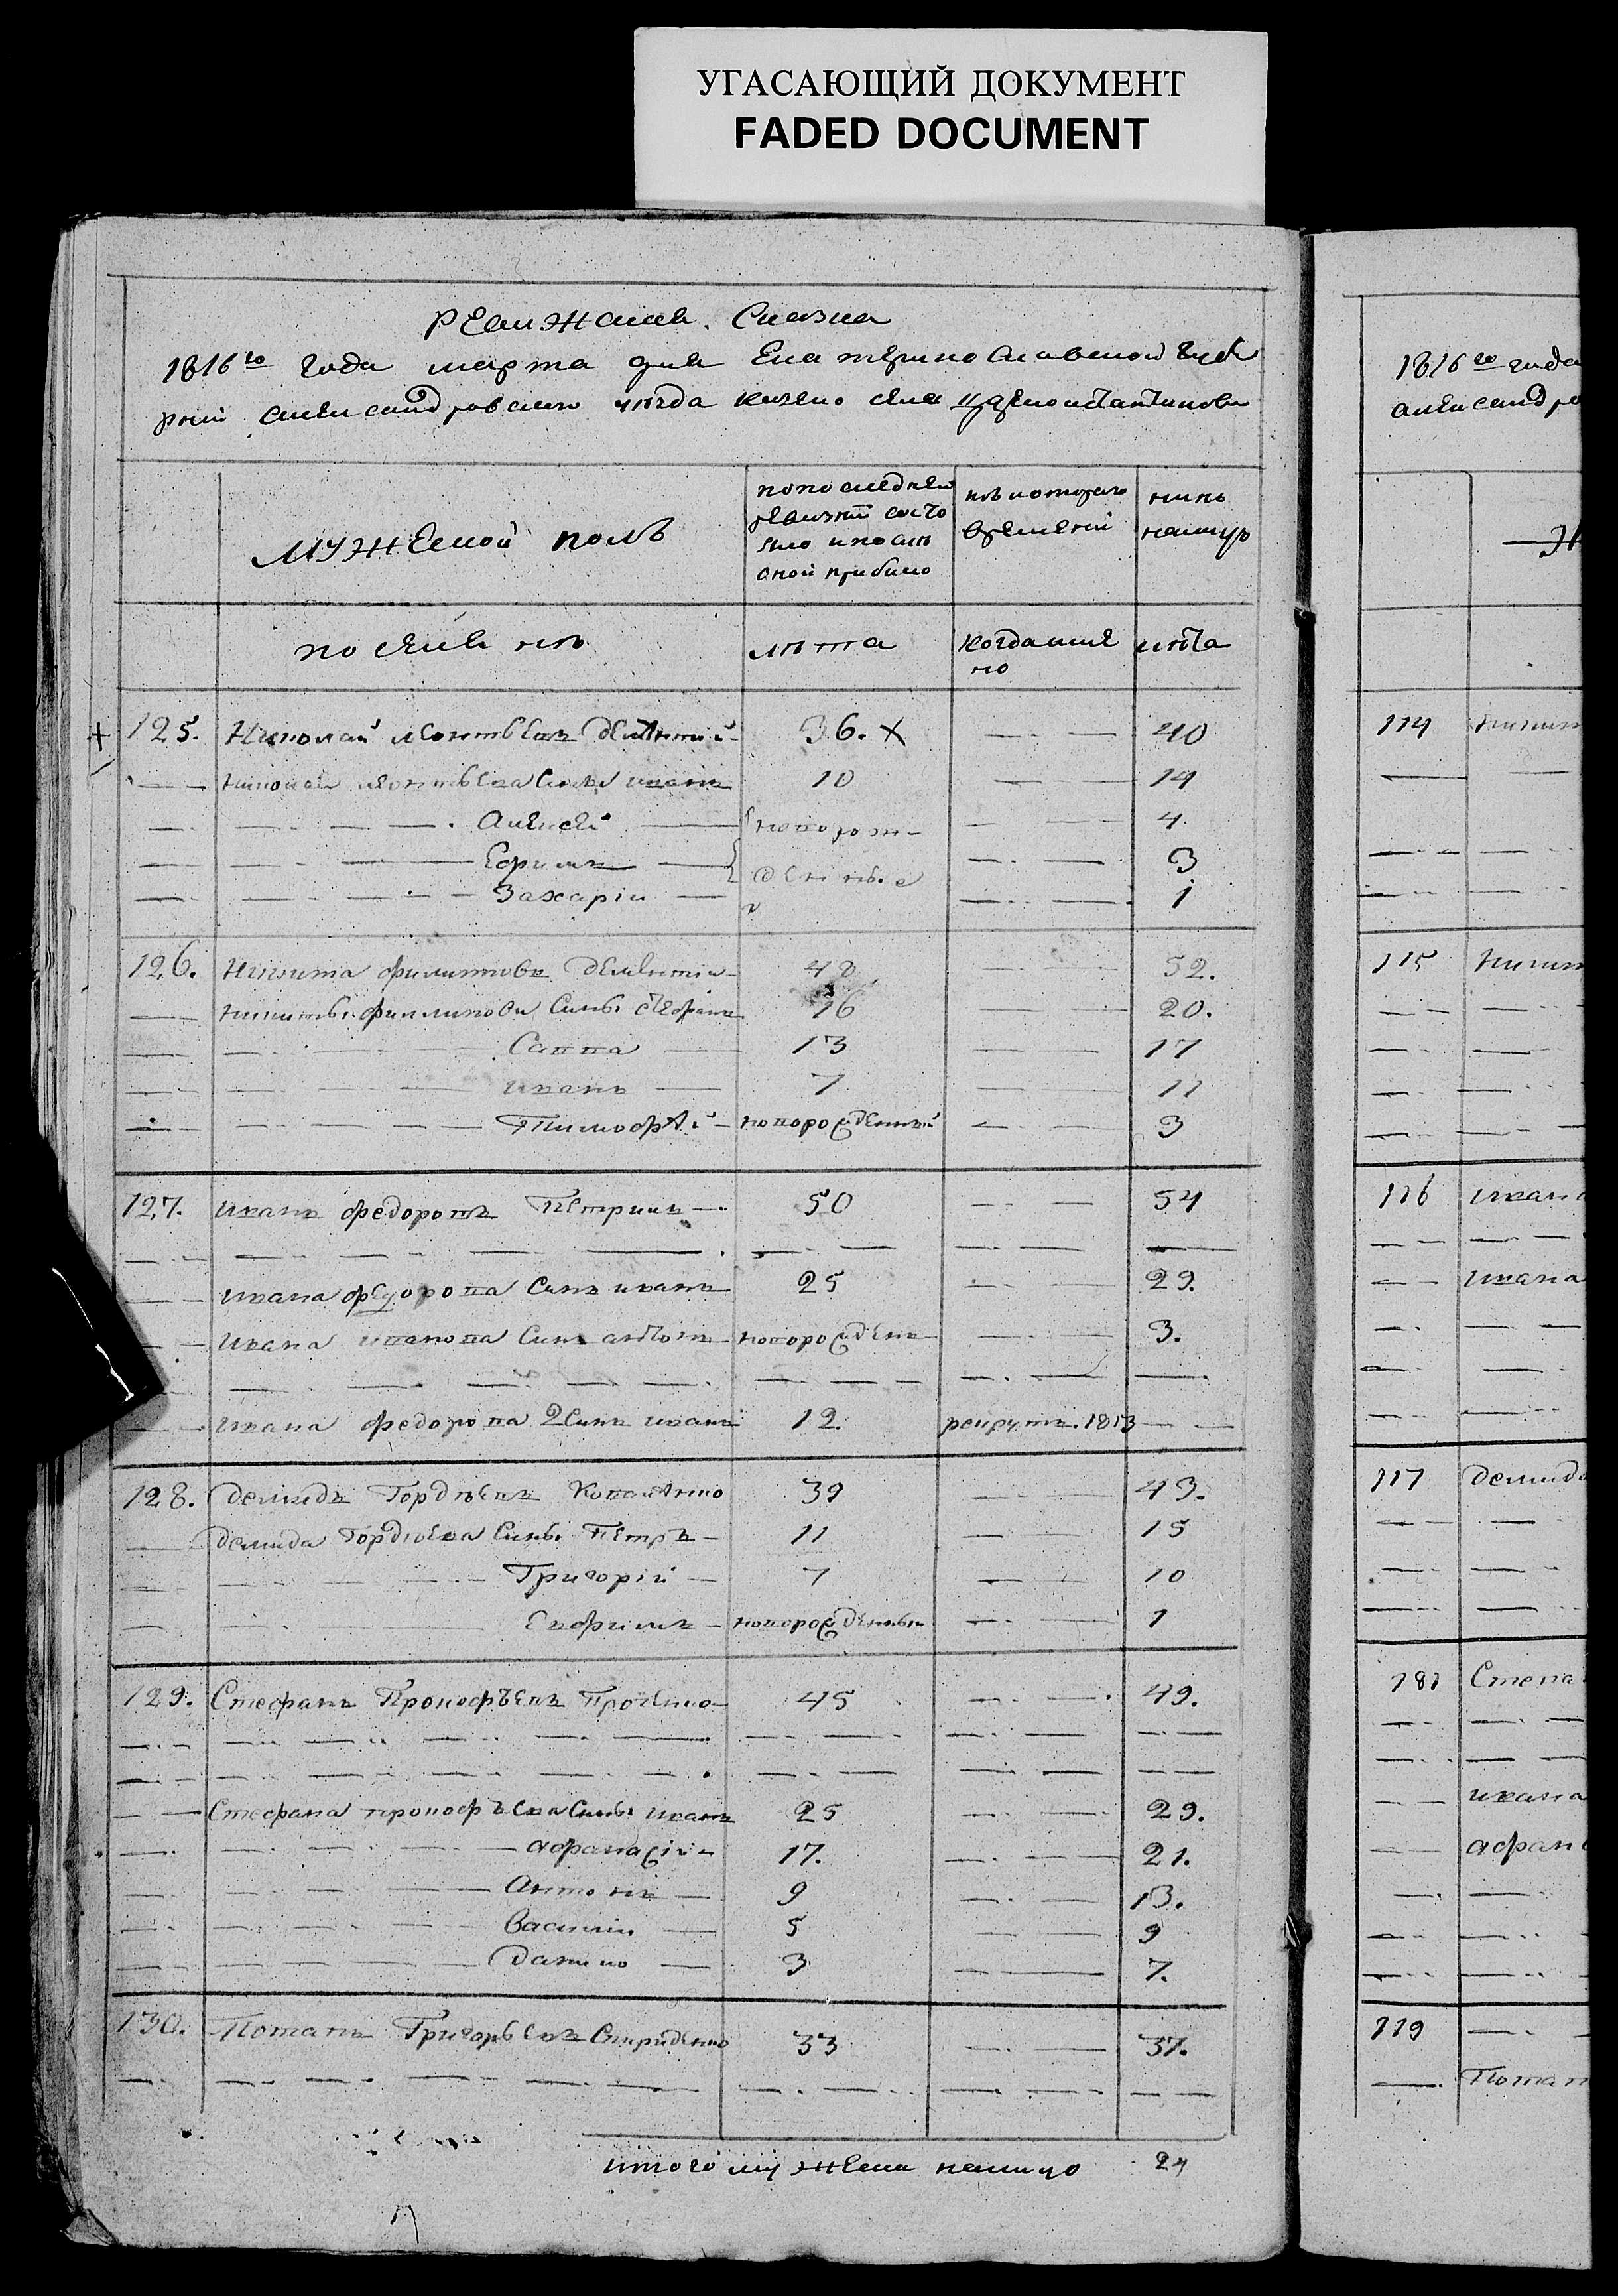 УГАСАЮЩИЙ ДОКУМЕНТ
FADED DOCUMENT
Ревижская. Сказка
1816го года марта дня Екатеринославской губе
рнии александровского уезда казено села цареконстантиновки
1816го года
александро
мужеской полъ
по последней ревизии состо яло и после оной прибыло
изъ которого времени
нинѣ налицо
по семи нъ
лѣта
когда имено
лѣта
125. Николай леонтьевъ дементий 36. X 40
николая леонтьева сины иванъ 10 14
Алексей новорож 4
Ефимъ денные 3
Захарій 1
126. Никита филиповъ дементи 48 52.
никиты филипова сины стефанъ 16 20.
Савва 13 17
иванъ 7 11
Тимофей новорожденный 3
127. иванъ федоровъ Петрик 50 54
ивана федорова синъ иванъ 25 29.
ивана иванова синъ антонъ новорожденъ 3.
ивана федорова 2 синъ иванъ 12. рекрутъ. 1813
128. Демидъ Гордѣевъ 39 43.
демида Гордѣева сины Петръ 11 15
Григорій 7 10
Евфимъ новорожденный 1
129. Стефанъ Прокофьевъ 45 49.
Стефана прокофьева сины иванъ 25 29.
афанасій 17. 21.
Антонъ 9 13.
Василій 5 9
Данило 3 7.
130. Потапъ Григорьевъ Свириденко 33 37.
итого мужеска налицо 24
114 никит
115 Никит
116 ивана
ивана
117 Демида
181 Степа
ивана
афан
119
Потап